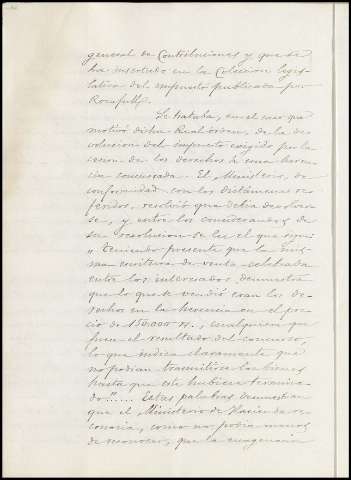 general de Contribuciones y que se
ha insertado en la Coleccion legis-
lativa del impuesto publicada por
Rocafull.
Se trataba, en el caso que
motivó dicha Real orden, de la de-
volucion del impuesto exigido por la
cesion de los derechos á una heren-
cia concursada. El Ministerio, de
conformidad con los dictámenes re-
feridos, resolvió que debia devolver-
se, y entre los considerandos de
su resolucion se lee el que sigue:
"Teniendo presente que la mis-
ma escritura de venta celebrada
entre los interesados demuestra
que lo que se vendió eran los de-
rechos en la herencia en el pre-
cio de 150.000 rs., cualquiera que
fuera el resultado del concurso,
lo que indica claramente que
no podian transmitirse los bienes
hasta que este hubiera termina-
do"..... Estas palabras demuestran
que el Ministerio de Hacienda re-
conocia, como no podia menos
de reconocer, que la enagenacion